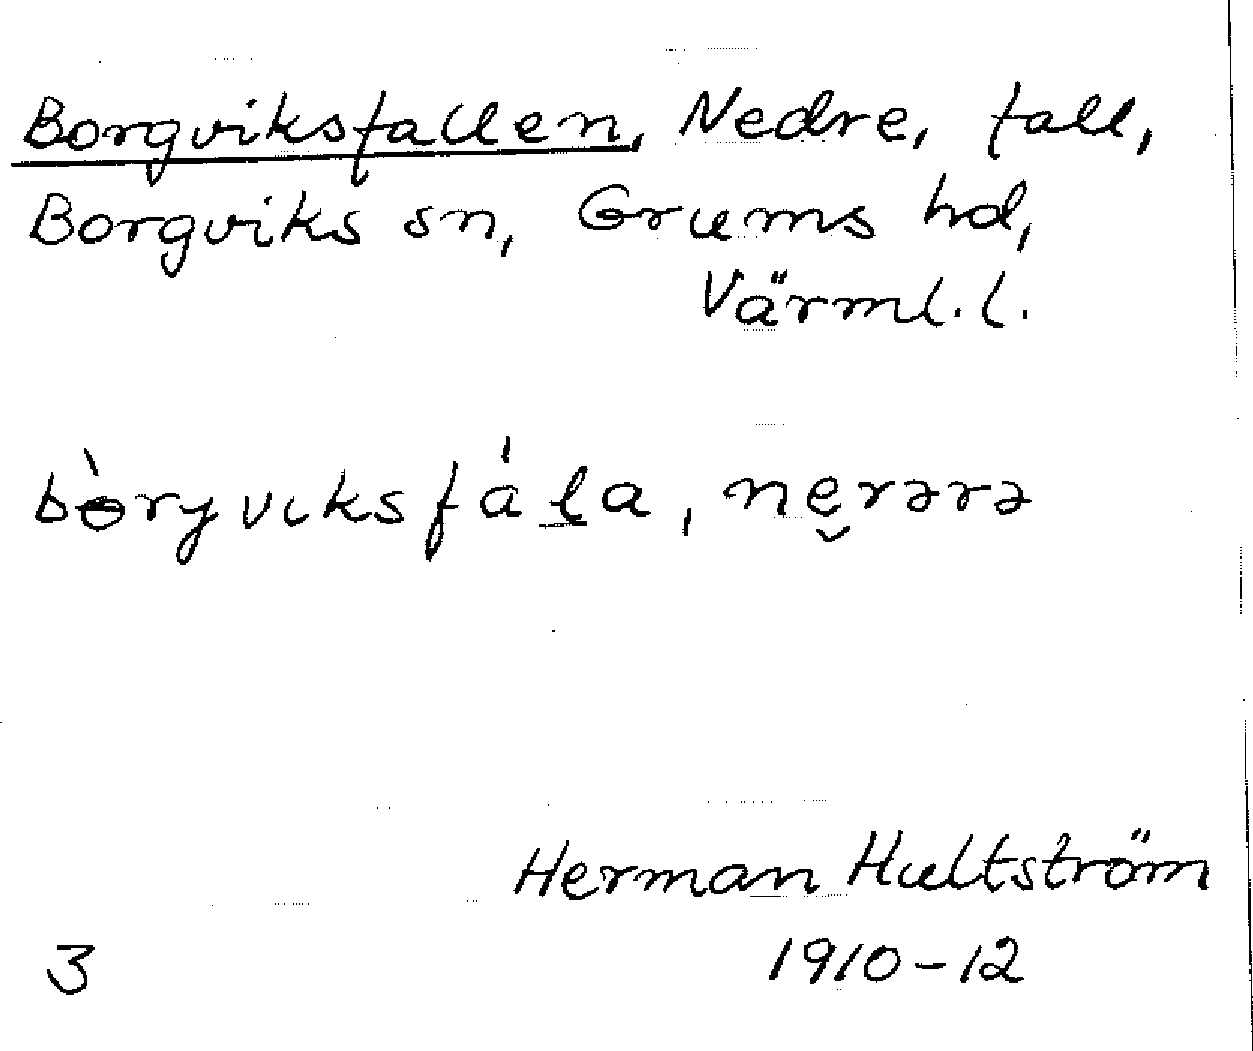 Borgviksfallen, Nedre, fall,
Borgviks sn, Grums hd,
Värml. l.
bɵ̀ryvıksfáḻa, ne̮rərə
Herman Hultström
3 1910-12